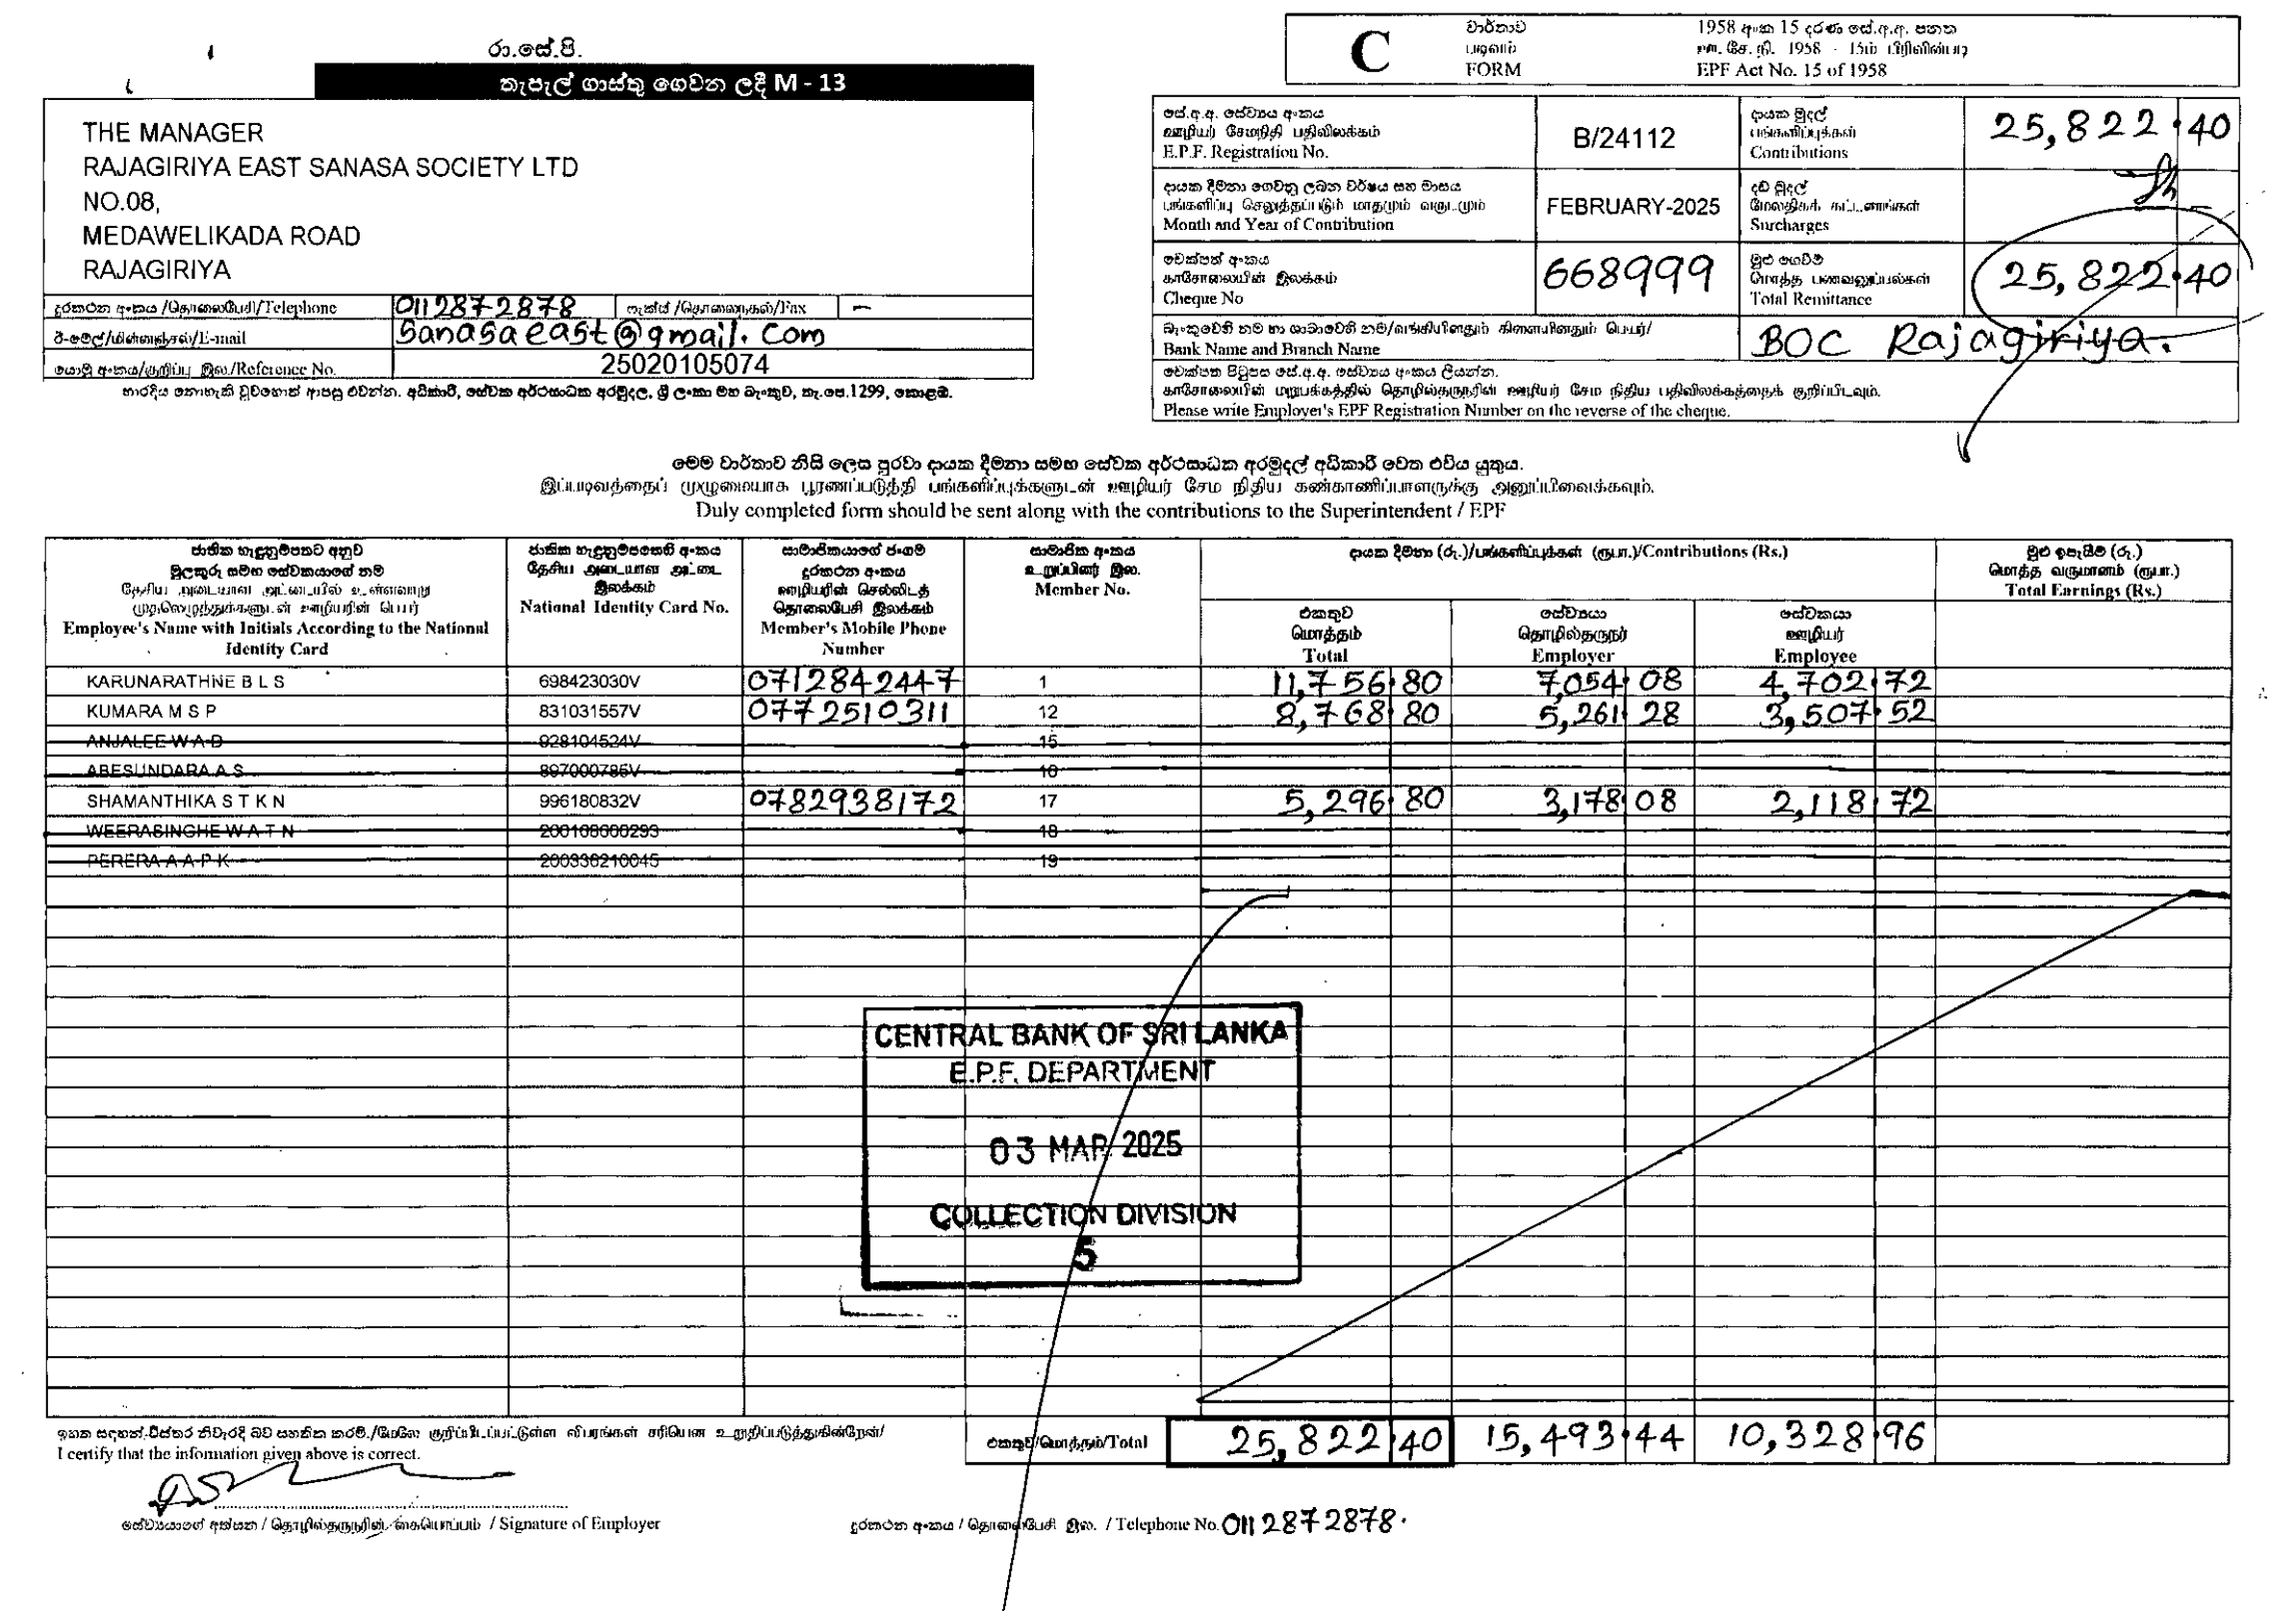 රා.සේ.පි.
තැපැල් ගාස්තු ගෙවන ලදී M - 13
THE MANAGER
RAJAGIRIYA EAST SANASA SOCIETY LTD
NO.08,
MEDAWELIKADA ROAD
RAJAGIRIYA
දුරකථන අංකය /தொலைபேசி/Telephone 0112872878 ෆැක்ස් /தொலைநகல்/Fax –
ඊ-මේල්/மின்னஞ்சல்/E-mail sanasaeast@gmail.com
යොමු අංකය/குறிப்பு இல./Reference No. 25020105074
භාරදිය නොහැකි වුවහොත් ආපසු එවන්න. අධිකාරී, සේවක අර්ථසාධක අරමුදල, ශ්‍රී ලංකා මහ බැංකුව, තැ.පෙ.1299, කොළඹ.
C
වාර්තාව
படிவம்
FORM
1958 අංක 15 දරණ සේ.අ.අ. පනත
ஊ. சே. நி. 1958 - 15ம் பிரிவின்படி
EPF Act No. 15 of 1958
සේ.අ.අ. සේව්‍යය අංකය
ஊழியர் சேமநிதி பதிவிலக்கம்
E.P.F. Registration No.
B/24112
දායක මුදල්
பங்களிப்புக்கள்
Contributions
25,822.40
දායක දීමනා ගෙවනු ලබන වර්ෂය සහ මාසය
பங்களிப்பு செலுத்தப்படும் மாதமும் வருடமும்
Month and Year of Contribution
FEBRUARY-2025
දඩ මුදල්
மேலதிகக் கட்டணங்கள்
Surcharges
චෙක්පත් අංකය
காசோலையின் இலக்கம்
Cheque No
668999
මුළු ගෙවීම්
மொத்த பணவனுப்பல்கள்
Total Remittance
25,822.40
බැංකුවෙහි නම හා ශාඛාවෙහි නම/வங்கியினதும் கிளையினதும் பெயர்/
Bank Name and Branch Name
BOC Rajagiriya.
චෙක්පත පිටුපස සේ.අ.අ. සේව්‍යය අංකය ලියන්න.
காசோலையின் மறுபக்கத்தில் தொழில்தருநரின் ஊழியர் சேம நிதிய பதிவிலக்கத்தைக் குறிப்பிடவும்.
Please write Employer's EPF Registration Number on the reverse of the cheque.
මෙම වාර්තාව නිසි ලෙස පුරවා දායක දීමනා සමඟ සේවක අර්ථසාධක අරමුදල් අධිකාරී වෙත එවිය යුතුය.
இப்படிவத்தைப் முழுமையாக பூரணப்படுத்தி பங்களிப்புக்களுடன் ஊழியர் சேம நிதிய கண்காணிப்பாளருக்கு அனுப்பிவைக்கவும்.
Duly completed form should be sent along with the contributions to the Superintendent / EPF
ජාතික හැඳුනුම්පතට අනුව
මුලකුරු සමඟ සේවකයාගේ නම
தேசிய அடையாள அட்டையில் உள்ளவாறு
முதலெழுத்துக்களுடன் ஊழியரின் பெயர்
Employee's Name with Initials According to the National
Identity Card
ජාතික හැඳුනුම්පතෙහි අංකය
தேசிய அடையாள அட்டை
இலக்கம்
National Identity Card No.
සාමාජිකයාගේ ජංගම
දුරකථන අංකය
ஊழியரின் செல்லிடத்
தொலைபேசி இலக்கம்
Member's Mobile Phone
Number
සාමාජික අංකය
உறுப்பினர் இல.
Member No.
දායක දීමනා (රු.)/பங்களிப்புக்கள் (ரூபா.)/Contributions (Rs.)
මුළු ඉපැයීම් (රු.)
மொத்த வருமானம் (ரூபா.)
Total Earnings (Rs.)
එකතුව
மொத்தம்
Total
සේව්‍යයා
தொழில்தருநர்
Employer
සේවකයා
ஊழியர்
Employee
KARUNARATHNE B L S 698423030V 0712842447 1 11,756.80 7,054.08 4,702.72
KUMARA M S P 831031557V 0772510311 12 8,768.80 5,261.28 3,507.52
ANJALEE W A D 928104524V 15
ABESUNDARA A S 897000785V 16
SHAMANTHIKA S T K N 996180832V 0782938172 17 5,296.80 3,178.08 2,118.72
WEERASINGHE W A T N 200108600293 18
PERERA A A P K 200336210045 19
CENTRAL BANK OF SRI LANKA
E.P.F. DEPARTMENT
03 MAR 2025
COLLECTION DIVISION
5
ඉහත සඳහන් විස්තර නිවැරදි බව සහතික කරමි./மேலே குறிப்பிடப்பட்டுள்ள விபரங்கள் சரியென உறுதிப்படுத்துகின்றேன்/
I certify that the information given above is correct.
එකතුව/மொத்தம்/Total 25,822.40 15,493.44 10,328.96
සේව්‍යයාගේ අත්සන / தொழில்தருநரின் கையொப்பம் / Signature of Employer
දුරකථන අංකය / தொலைபேசி இல. / Telephone No. 0112872878.